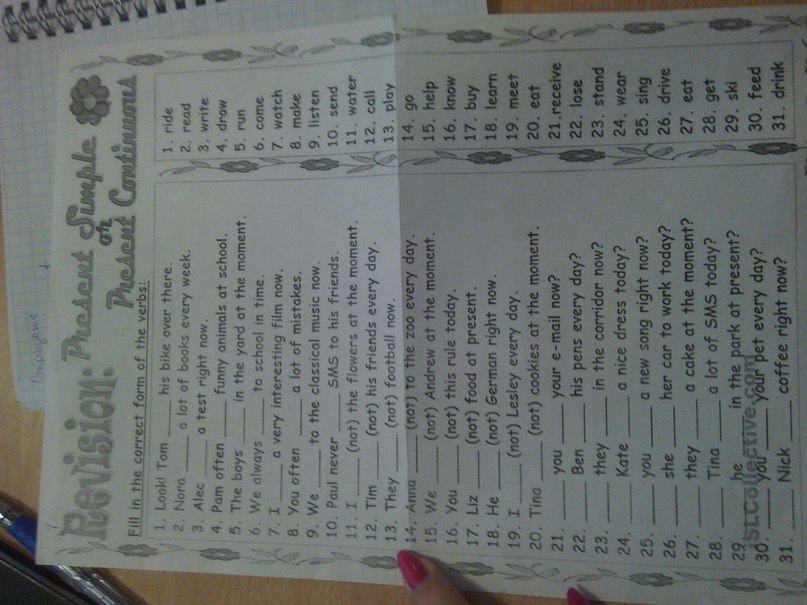 Revision: Present Simple
or
Present Continuous
Fill in the correct form of the verbs:
1. Look! Tom ____ his bike over there.
2. Nora ____ a lot of books every week.
3. Alec ____ a test right now.
4. Pam often ____ funny animals at school.
5. The boys ____ in the yard at the moment.
6. We always ____ to school in time.
7. I ____ a very interesting film now.
8. You often ____ a lot of mistakes.
9. We ____ to the classical music now.
10. Paul never ____ SMS to his friends.
11. I ____ (not) the flowers at the moment.
12. Tim ____ (not) his friends every day.
13. They ____ (not) football now.
14. Anna ____ (not) to the zoo every day.
15. We ____ (not) Andrew at the moment.
16. You ____ (not) this rule today.
17. Liz ____ (not) food at present.
18. He ____ (not) German right now.
19. I ____ (not) Lesley every day.
20. Tina ____ (not) cookies at the moment.
21. ____ you ____ your e-mail now?
22. ____ Ben ____ his pens every day?
23. ____ they ____ in the corridor now?
24. ____ Kate ____ a nice dress today?
25. ____ you ____ a new song right now?
26. ____ she ____ her car to work today?
27. ____ they ____ a cake at the moment?
28. ____ Tina ____ a lot of SMS today?
29. ____ he ____ in the park at present?
30. ____ you ____ your pet every day?
31. ____ Nick ____ coffee right now?
1. ride
2. read
3. write
4. draw
5. run
6. come
7. watch
8. make
9. listen
10. send
11. water
12. call
13. play
14. go
15. help
16. know
17. buy
18. learn
19. meet
20. eat
21. receive
22. lose
23. stand
24. wear
25. sing
26. drive
27. eat
28. get
29. ski
30. feed
31. drink
iSLCollective.com